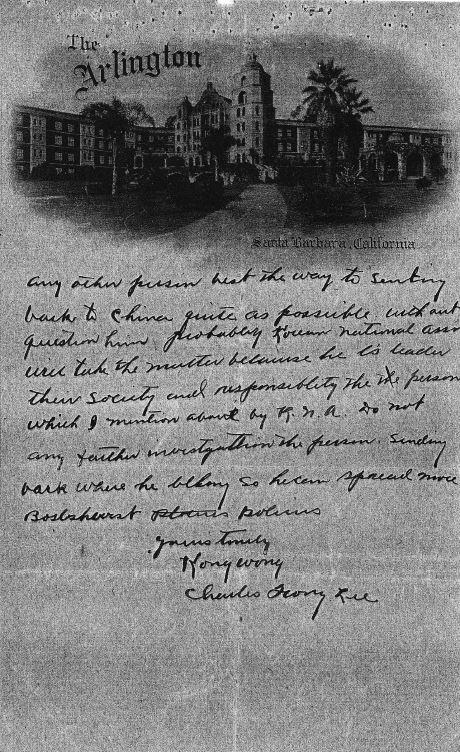 The
Arlington
Santa Barbara, California
any other person best the way to sending
back to China quite as possible without
question him. probably Korean national assn
will take the matter because he is leader
their society and responsiblity the the person
which I mention above by K. N. A. Do not
any further investgation the person. Sending
back where he blong so he can spread more
yours truly
Kong wong
Charles Lee